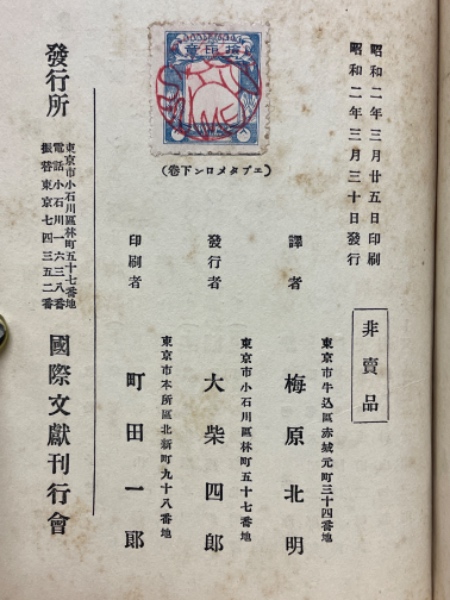 昭和二年三月廿五日印刷
昭和二年三月三十日發行
非賣品
檢印章
(エプタメロン下卷)
譯者
東京市牛込區赤城元町三十四番地
梅原北明
發行者
東京市小石川區林町五十七番地
大柴四郎
印刷者
東京市本所區北新町九十八番地
町田一郎
發行所
東京市小石川區林町五十七番地
電話小石川一六三八番
振替東京七四三五二番
國際文獻刊行會